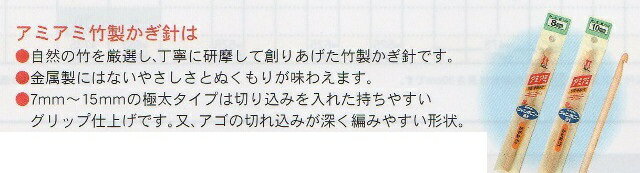 アミアミ竹製かぎ針は
●自然の竹を厳選し、丁寧に研磨して創りあげた竹製かぎ針です。
●金属製にはないやさしさとぬくもりが味わえます。
●7mm～15mmの極太タイプは切り込みを入れた持ちやすい
グリップ仕上げです。又、アゴの切れ込みが深く編みやすい形状。
8mm
10mm